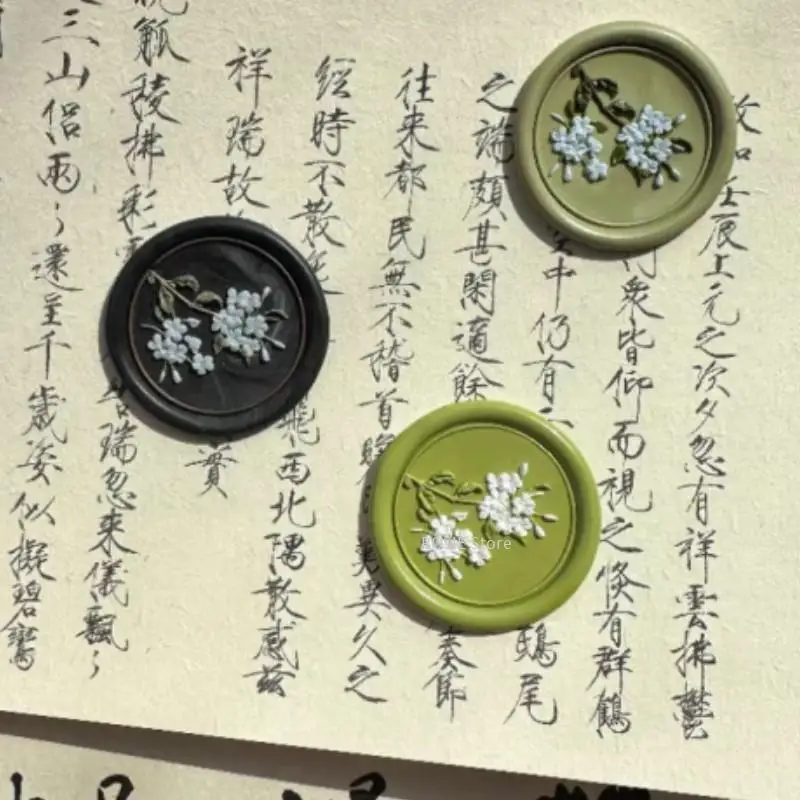 和壬辰上元之次夕忽有祥雲拂鬱
衆皆仰而視之倏有群鶴
中仍有 鴟尾
之端頗甚閑適餘 奏節
往來都民無不稽首瞻 異久之
經時不散 飛西北隅散感茲
祥瑞故 實
觚稜拂彩 瑞忽來儀飄〻
三山侶兩〻還呈千歲姿似擬碧鸞
Store